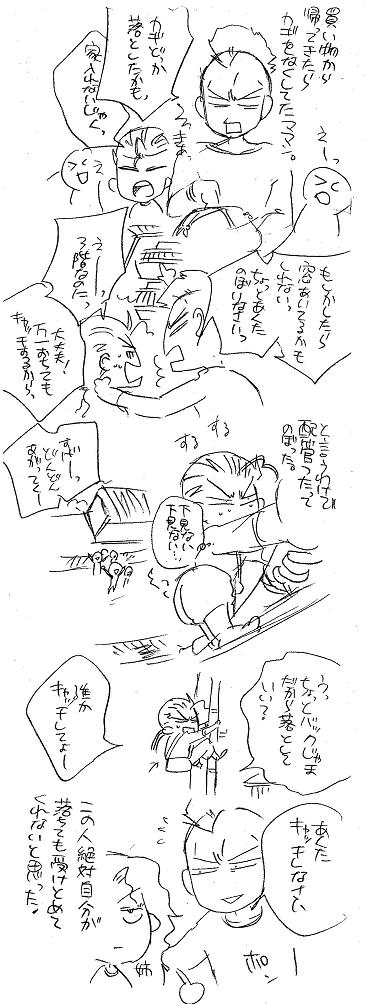 買い物から
帰ってきたら
カギをなくしてたママン。
カギどっか
落としたかも、
家入れないじゃん、
えーっ
えーっ
もしかしたら
窓あいてるかも
しれないっ
ちょっとあくた
のぼりなさいっ
えーーっ
3階なのたっ
大丈夫!
万一おちても
キャッチするから、
と言うわけで
配管つたって
のぼった。
するする
下見ない
下見ない…!
すげーっ
どんどん
あがってくー
うっ
ちょっとバックじゃま
だから落として
いい?
誰か
キャッチしてよー
あくた
キャッチしなさい、
ホローン
姉
この人絶対自分が
落ちても受けとめて
くれないと思った。